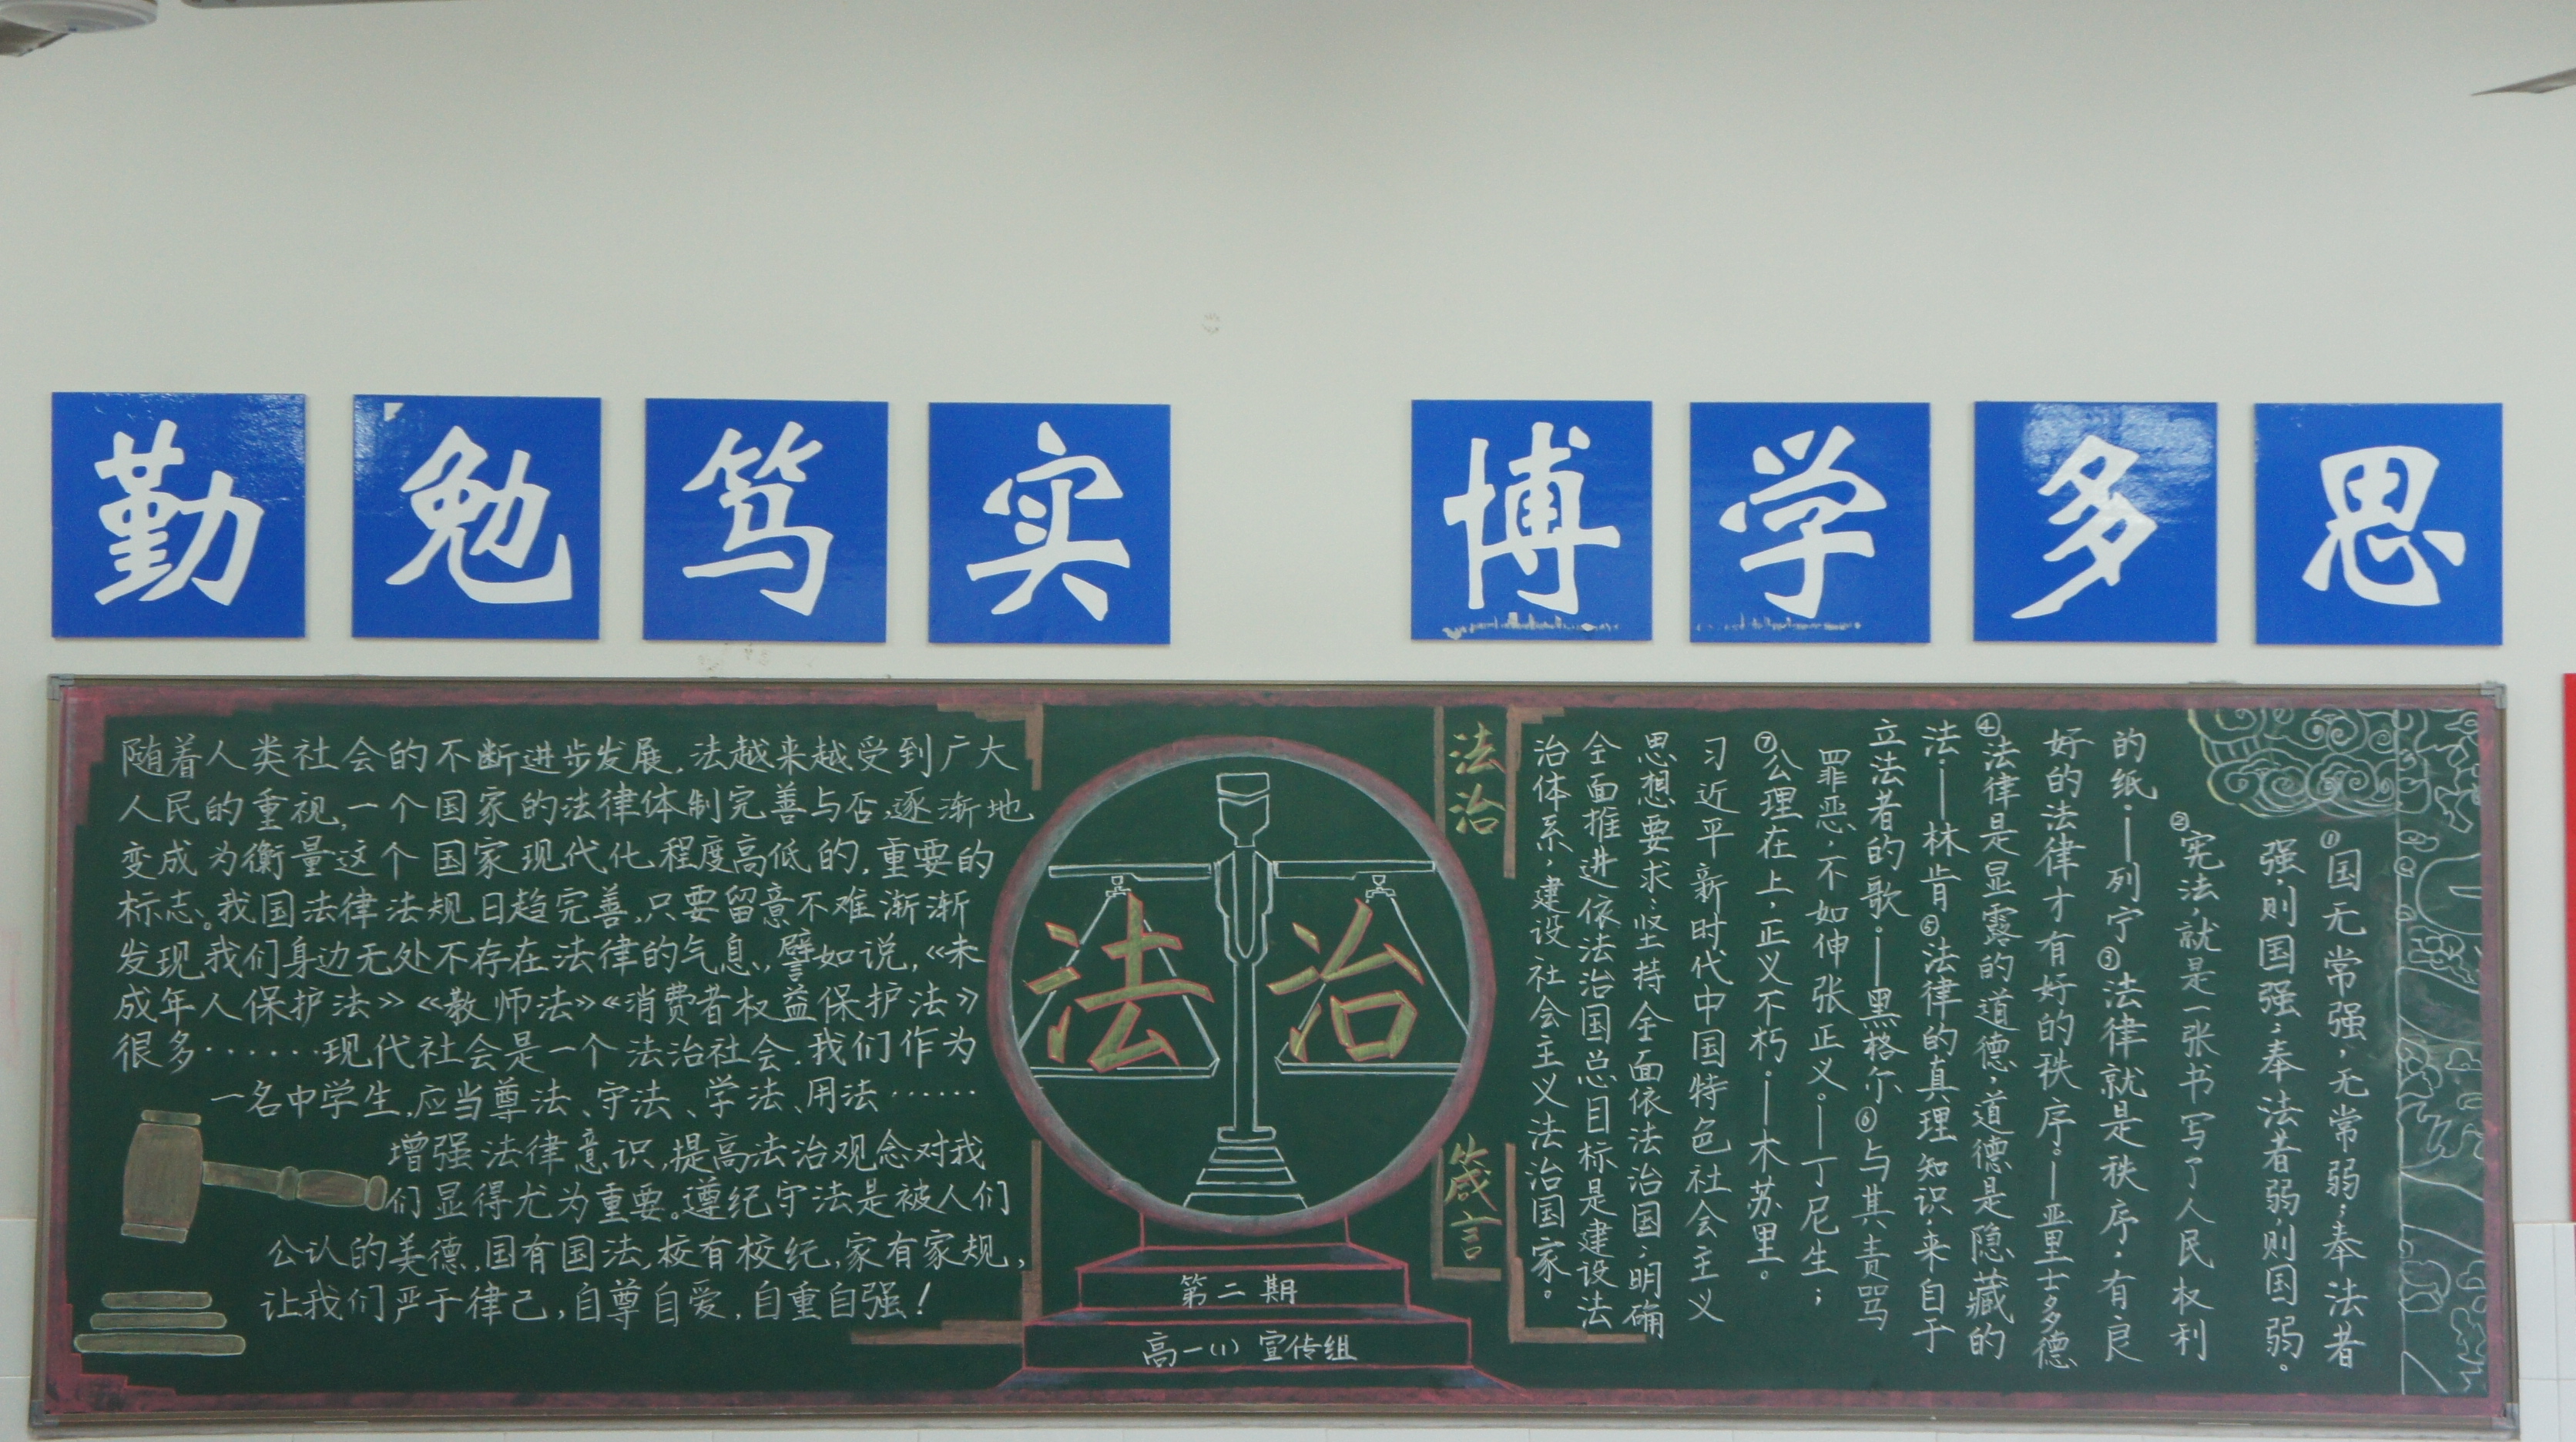 勤勉笃实 博学多思
随着人类社会的不断进步发展,法越来越受到广大
人民的重视,一个国家的法律体制完善与否,逐渐地
变成为衡量这个国家现代化程度高低的,重要的
标志。我国法律法规日趋完善,只要留意不难渐渐
发现,我们身边无处不存在法律的气息,譬如说,《未
成年人保护法》《教师法》《消费者权益保护法》
很多……现代社会是一个法治社会.我们作为
一名中学生,应当尊法、守法、学法、用法……
增强法律意识,提高法治观念对我
们显得尤为重要。遵纪守法是被人们
公认的美德,国有国法,校有校纪,家有家规,
让我们严于律己,自尊自爱,自重自强!
法治
第二期
高一(1)宣传组
法治
箴言
①国无常强,无常弱;奉法者
强,则国强;奉法者弱,则国弱。
②宪法,就是一张书写了人民权利
的纸。—列宁③法律就是秩序,有良
好的法律才有好的秩序。—亚里士多德
④法律是显露的道德,道德是隐藏的
法。—林肯⑤法律的真理知识,来自于
立法者的歌。—黑格尔⑥与其责骂
罪恶,不如伸张正义。—丁尼生;
⑦公理在上,正义不朽。—木苏里。
习近平新时代中国特色社会主义
思想要求:坚持全面依法治国,明确
全面推进依法治国总目标是建设法
治体系,建设社会主义法治国家。